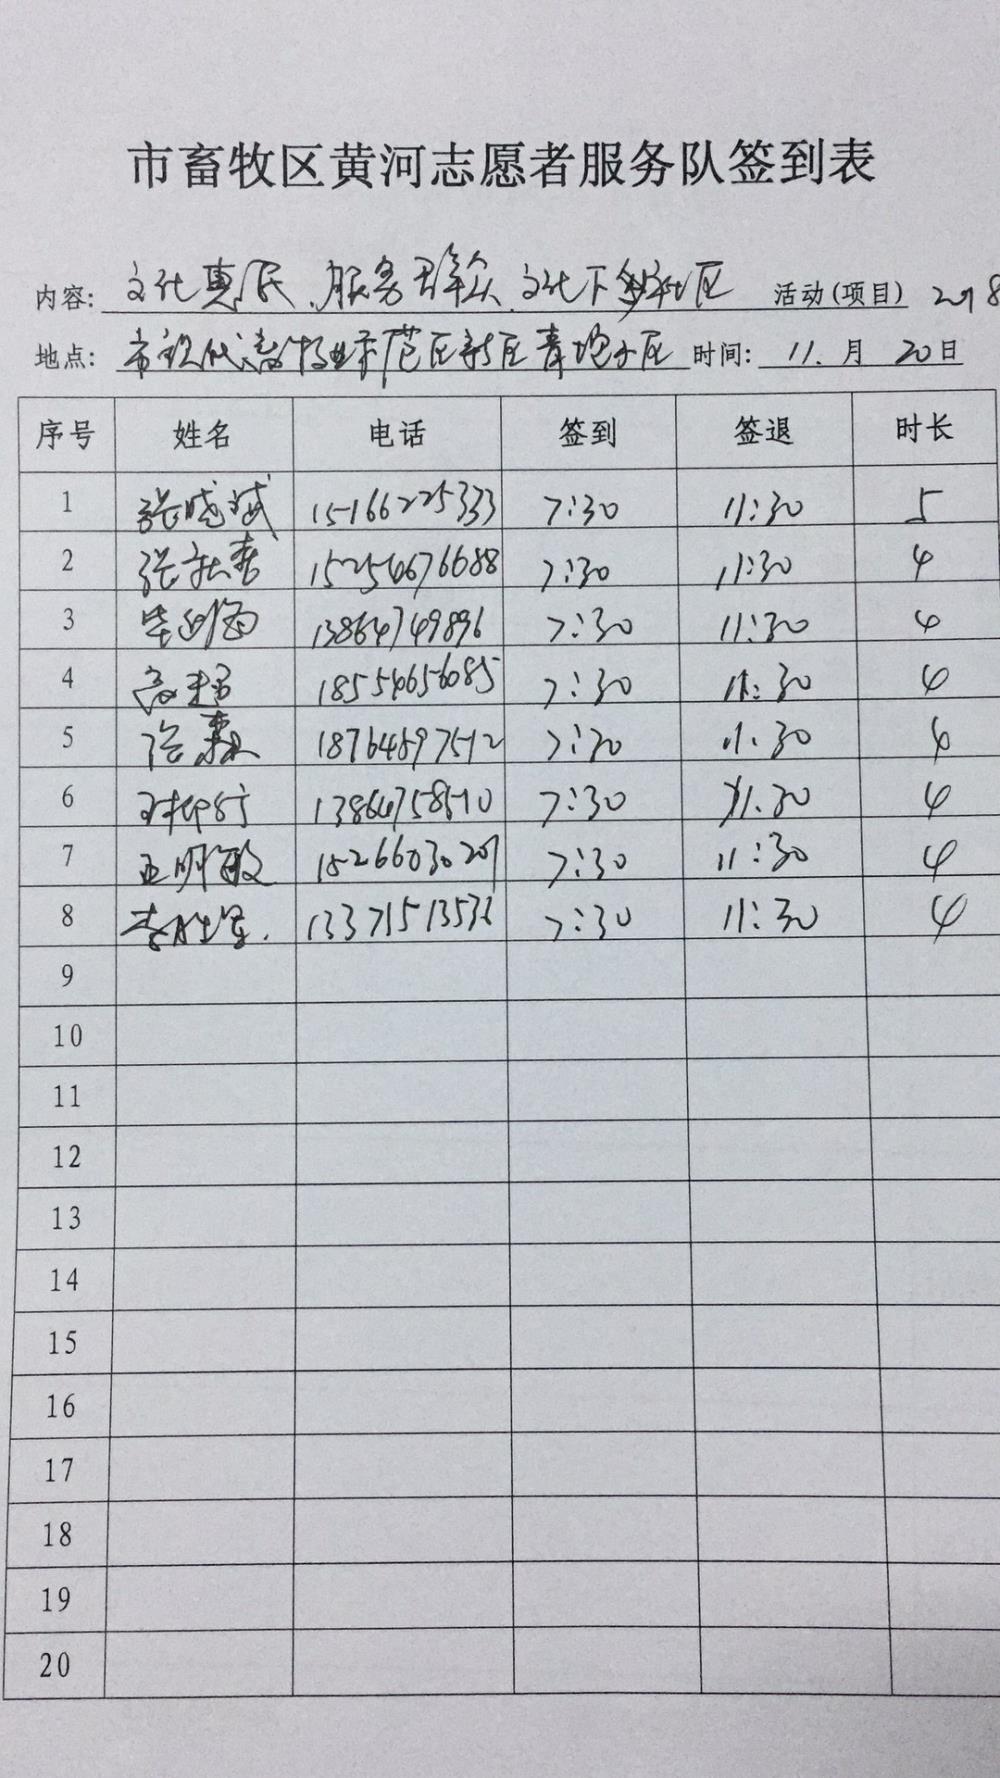 市畜牧区黄河志愿者服务队签到表
内容: 文化惠民、服务群众、文化下乡社区 活动(项目) 2018
地点: 市现代畜牧业示范区新区青坨小区 时间: 11.月 20日
序号 姓名 电话 签到 签退 时长
1 张晓斌 15166225333 7:30 11:30 5
2 张秋春 15254676688 7:30 11:30 4
3 13864749896 7:30 11:30 4
4 高超 18554656085 7:30 11:30 4
5 徐森 18764897512 7:30 11:30 4
6 13864758510 7:30 11.30 4
7 王明敏 15266030207 7:30 11:30 4
8 李胜军. 13371513536 7:30 11:30 4
9
10
11
12
13
14
15
16
17
18
19
20